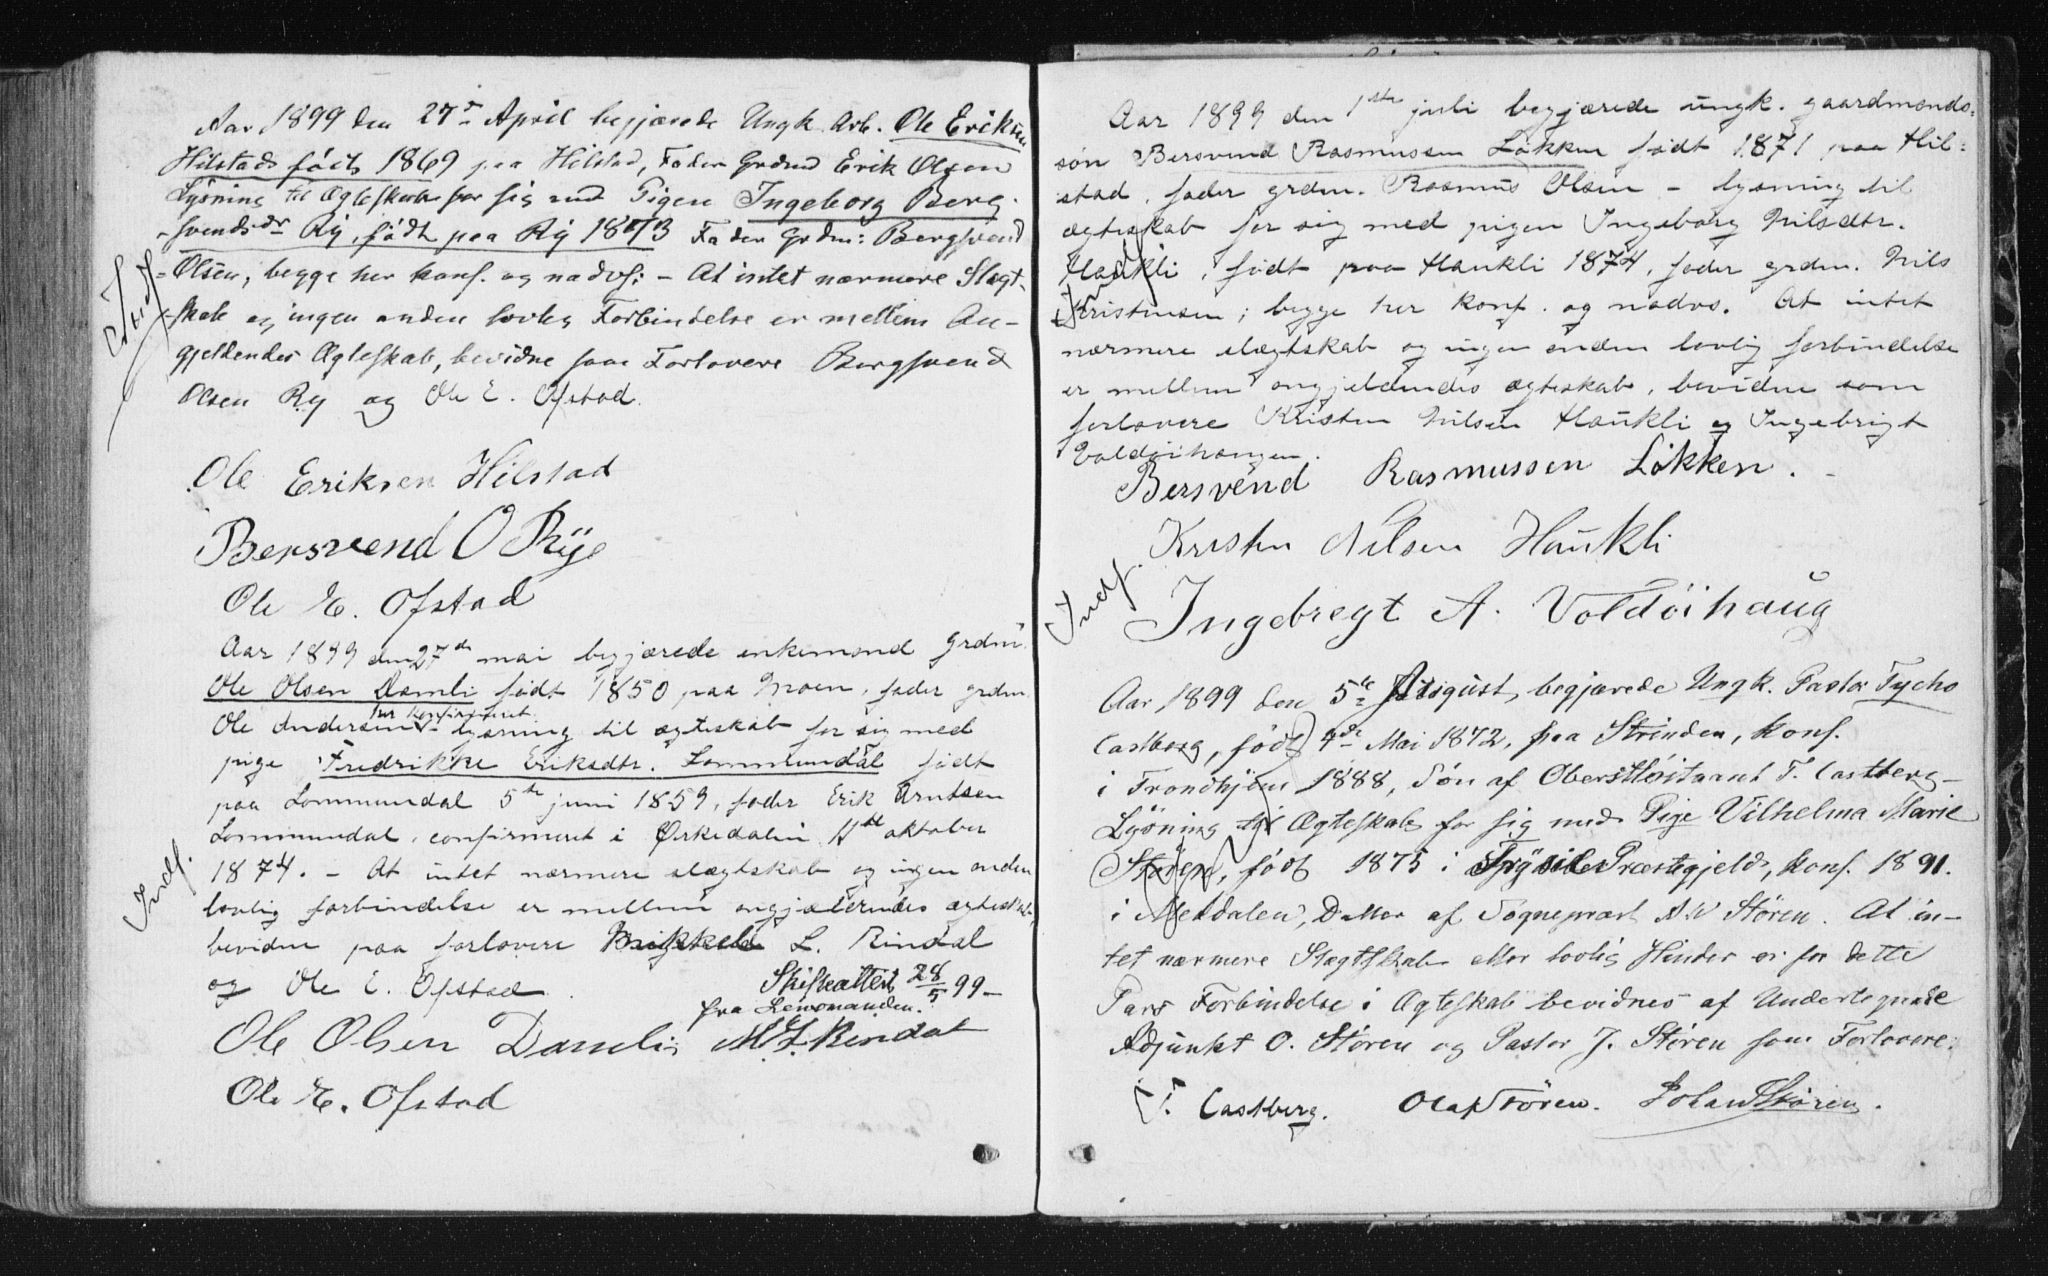 Aar 1899 den 27de April begjærede Ungk. Arb. Ole Eriksen
Hilstad født 1869 paa Hilstad, Fader Grdmd Erik Olsen
Lysning til Ægteskab for sig med Pigen Ingeborg Berg-
-svendsdr Ry, født paa Ry 1873 Fader Grdm: Bergsvend
-Olsen, begge her konf. og nadvf: - At intet nærmere Slægt-
-skab og ingen anden lovlig Forbindelse er mellem An-
gjeldendes Ægteskab, bevidne som Forlovere Bergsvend
Olsen Ry og Ole E. Ofstad.
Indf.
Ole Eriksen Hilstad
Bersvend O Rye
Ole E. Ofstad
Aar 1899 den 27de mai begjærede enkemand Grdm.
Ole Olsen Damli født 1850 paa Moen, fader grdm.
her konfirmeret
Ole Andersen - lysning til ægteskab for sig med
pige Fredrikke Eriksdtr. Lommundal født
paa Lommundal 5te juni 1859, fader Erik Arntsen
Lommundal, confirmeret i Ørkedalen 11te oktober
1874. - At intet nærmere slægtskab og ingen anden
lovlig forbindelse er mellem angjældendes ægteskab,
bevidne paa forlovere L. Rindal
og Ole E. Ofstad
Indf.
Skifteattest 28/5 99-
fra Lensmanden.
Ole Olsen Damli M L Rindal
Ole E. Ofstad
Aar 1899 den 1ste juli begjærede ungk. gaardmands-
søn Bersvend Rasmussen Løkken født 1871 paa Hil-
stad, fader grdm. Rasmus Olsen - lysning til
ægteskab for sig med pigen Ingeborg Nilsdtr.
Haukli, født paa Haukli 1874, fader grdm. Nils
Kristensen; begge her konf. og nadvs. At intet
nærmere slægtskab og ingen anden lovlig forbindelse
er mellem angjeldendes ægteskab, bevidne som
forlovere Kristen Nilsen Haukli og Ingebrigt
Voldøihaugen.
Indf.
Bersvend Rasmussen Løkken.
Kristen Nilsen Haukli
Ingebregt A. Voldöihaug
Indf.
Aar 1899 den 5te August, begjærede Ungk. Pastor Tycho
Castberg, født 4de Mai 1872, paa Strinden, konf.
i Trondhjem 1888, Søn af Oberstløitnant T. Castberg -
Lysning til Ægteskab for sig med Pige Vilhelma Marie
Støren, født 1875 i Trysils Præstegjeld, konf. 1891.
i Meldalen, Datter af Sogneprest A W Støren. At in-
tet nærmere Slægtskab eller lovlig Hinder er for dette
Pars Forbindelse i Ægteskab bevidnes af Undertegnede
Adjunkt O. Støren og Pastor J. Støren som Forlovere:
T. Castberg. Olaf Støren. Johan Støren.